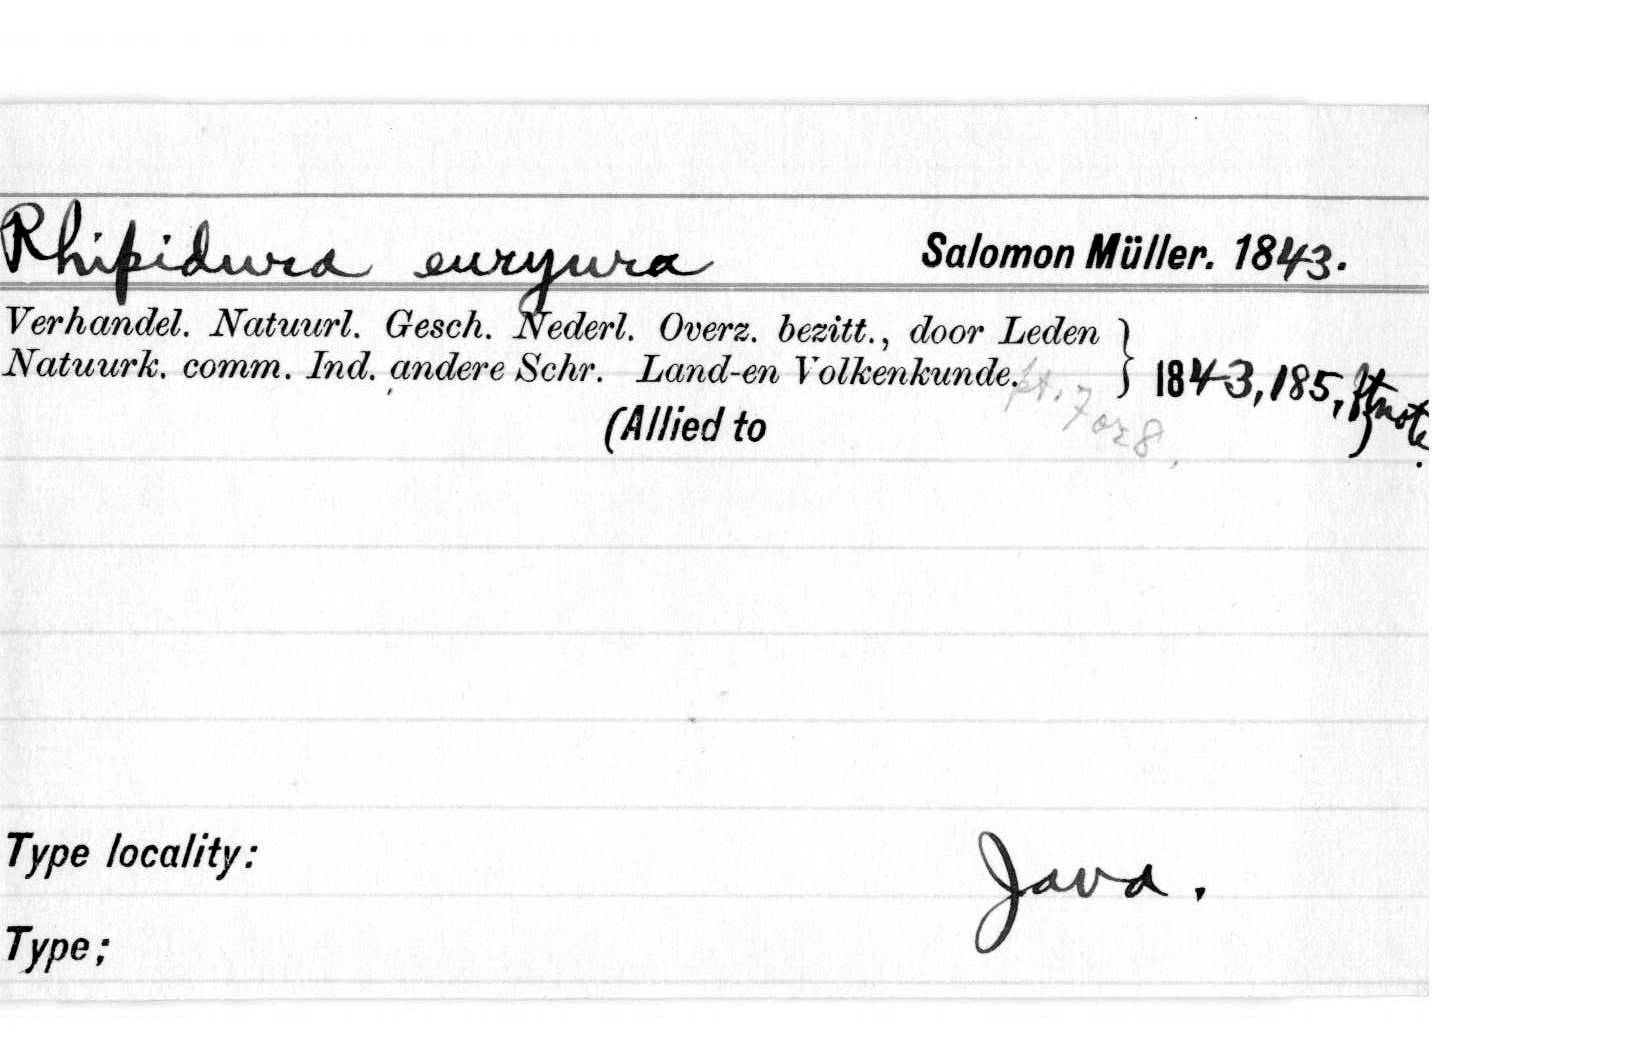 Rhipidura euryura Salomon Müller. 1843.
Verhandel. Natuurl. Gesch. Nederl. Overz. bezitt., door Leden
Natuurk. comm. Ind. andere Schr. Land-en Volkenkunde. } 1843, 185, ftnote.
pt. 7 or 8.
(Allied to )
Type locality: Java.
Type;